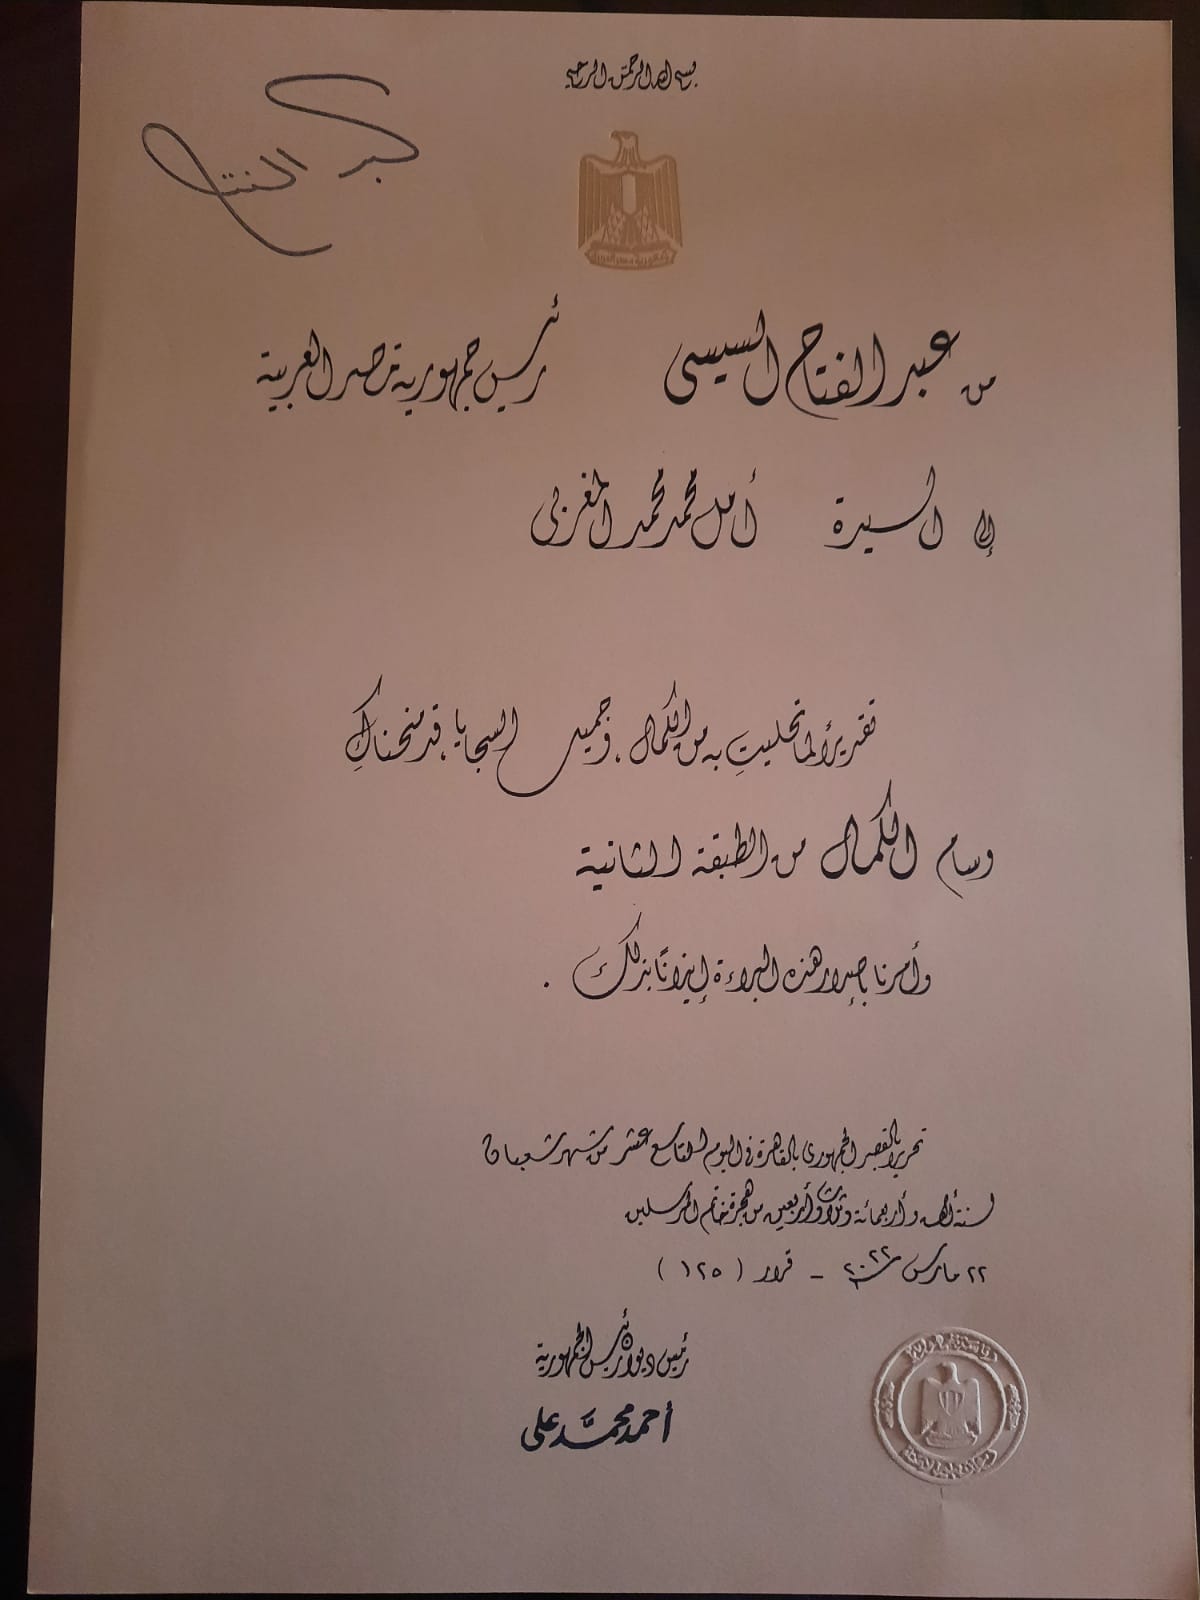 بسم الله الرحمن الرحيم
من عبد الفتاح السيسى رئيس جمهورية مصر العربية
إلى السيدة أمل محمد محمد المغربى
تقديراً لما تحليتِ به من الكمال ، وجميل السجايا ، قد منحناكِ
وسام الكمال من الطبقة الثانية
وأمرنا بإصدار هذه البراءة إيذانًا بذلك .
تحريراً بالقصر الجمهورى بالقاهرة فى اليوم التاسع عشر من شهر شعبان
لسنة ألف وأربعمائة وثلاث وأربعين من هجرة خاتم المرسلين
٢٢ مارس سنة ٢٠٢٢ - قرار ( ١٢٥ )
رئيس ديوان رئيس الجمهورية
أحمد محمَّد على